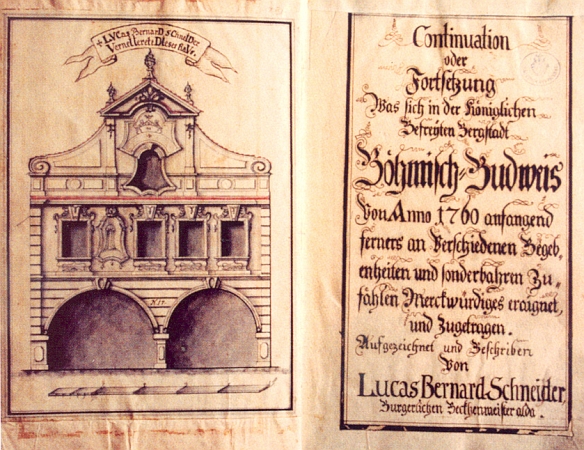 LVCas BernarD SChneIDer
VerneUerete DIeses HaVs.
Continuation
oder
Fortsetzung
Was sich in der Königlichen
Befreyten Bergstadt
Böhmisch-Budweis
Von Anno 1760 anfangend
ferners an Verschiedenen Begeb-
enheiten und sonderbahren Zu-
fählen Merckwürdiges eraignet,
und Zugetragen.
Aufgezeichnet und Beschriben
Von
Lucas Bernard Schneider
Burgerlichen Beckhenmeister alda.